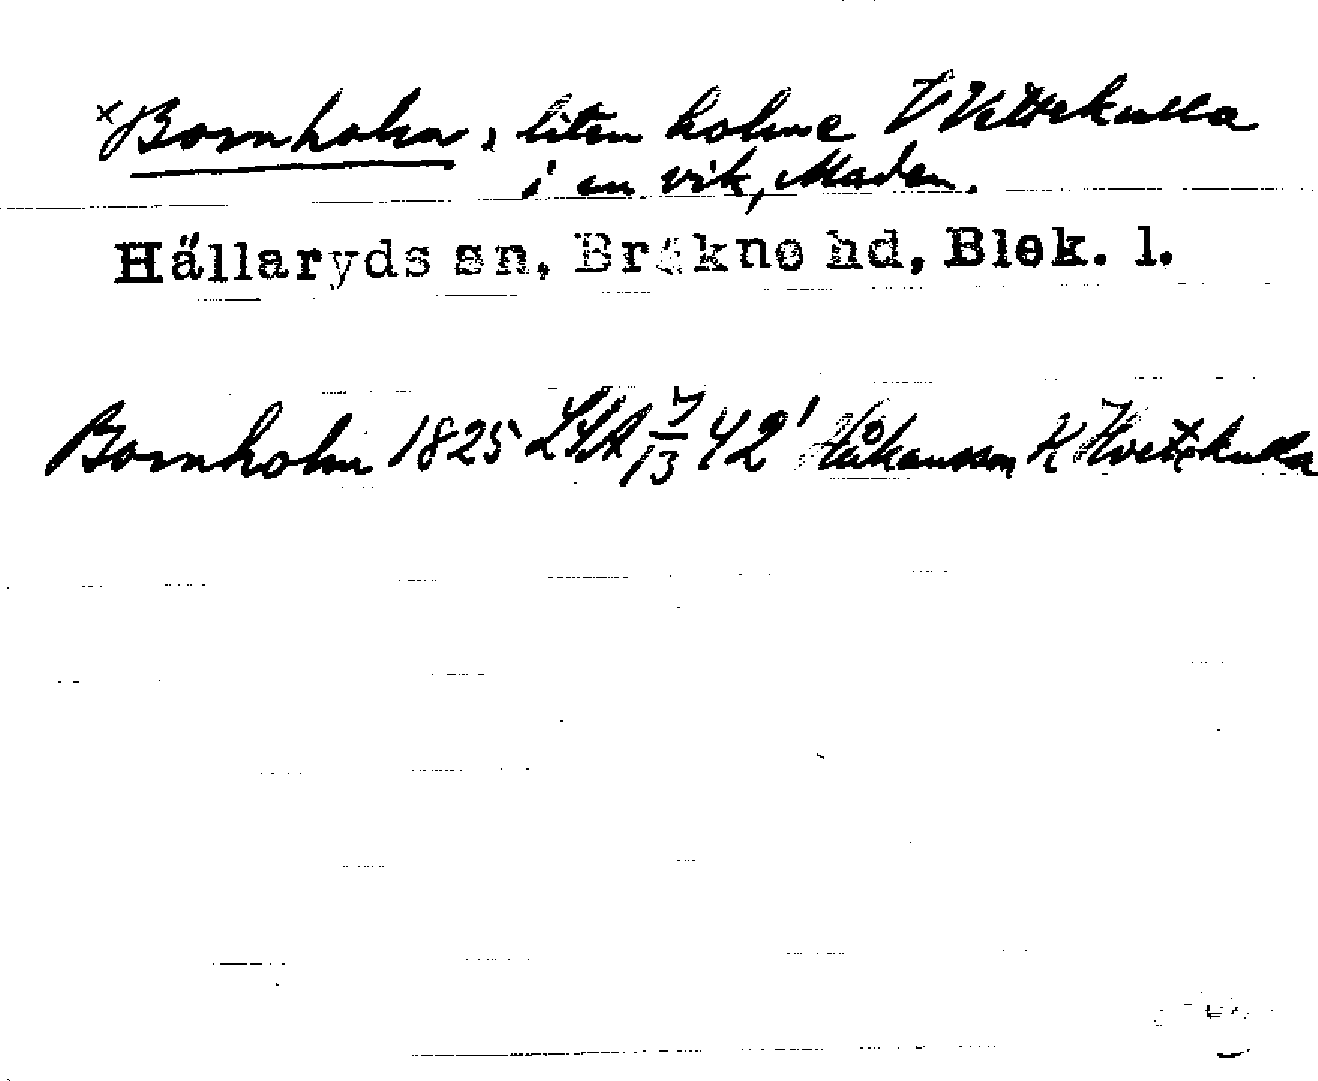 ×Bornholm, liten holme V Vettekulla
i en vik, Maden.
Hällaryds sn, Bräkne hd, Blek. l.
Bornholm 1825 LSA 7/13 42' Håkansson K Hvetekulla